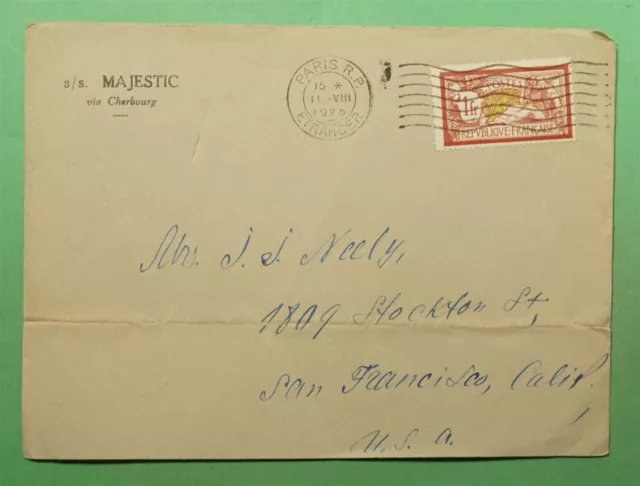 s/s. MAJESTIC
via Cherbourg
PARIS R.P.
15 *
11 VIII
1926
ETRANGER
POSTES
1fr
REPUBLIQUE FRANCAISE
Mrs. J. J. Neely,
1809 Stockton St,
San Francisco, Calif.
U. S. A.